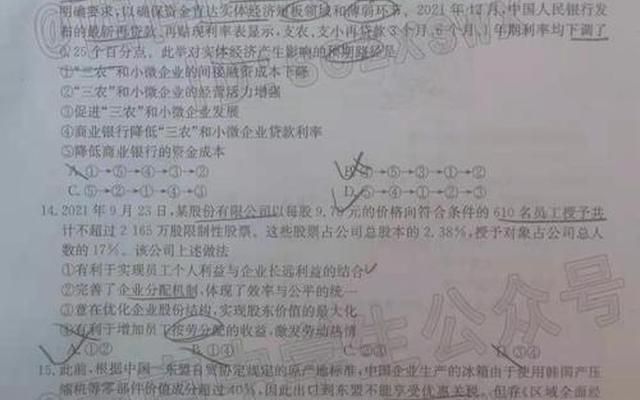 明确要求，以确保资金直达实体经济短板领域和薄弱环节。2021年12月，中国人民银行发
布的最新再贷款、再贴现利率表显示，支农、支小再贷款3个月、6个月、1年期利率均下调了
0.25个百分点。此举对实体经济产生影响的预期路径是
①“三农”和小微企业的间接融资成本下降
②“三农”和小微企业的经营活力增强
③促进“三农”和小微企业发展
④商业银行降低“三农”和小微企业贷款利率
⑤降低商业银行的资金成本
A.①→⑤→④→③→②
B.④→⑤→③→①→②
C.⑤→②→①→④→③
D.⑤→④→①→②→③
14.2021年9月23日，某股份有限公司以每股9.78元的价格向符合条件的610名员工授予共
计不超过2165万股限制性股票。这些股票占公司总股本的2.38%，授予对象占公司总人
数的17%。该公司上述做法
①有利于实现员工个人利益与企业长远利益的结合
②完善了企业分配机制，体现了效率与公平的统一
③意在优化企业股份结构，实现股东价值的最大化
④有利于增加员工按劳分配的收益，激发劳动热情
A.①② B.①④ C.②③ D.③④
15.此前，根据中国—东盟自贸协定规定的原产地标准，中国企业生产的冰箱由于使用韩国产压
缩机等零部件价值成分超过40%，因此出口到东盟不能享受优惠关税。但在《区域全面经